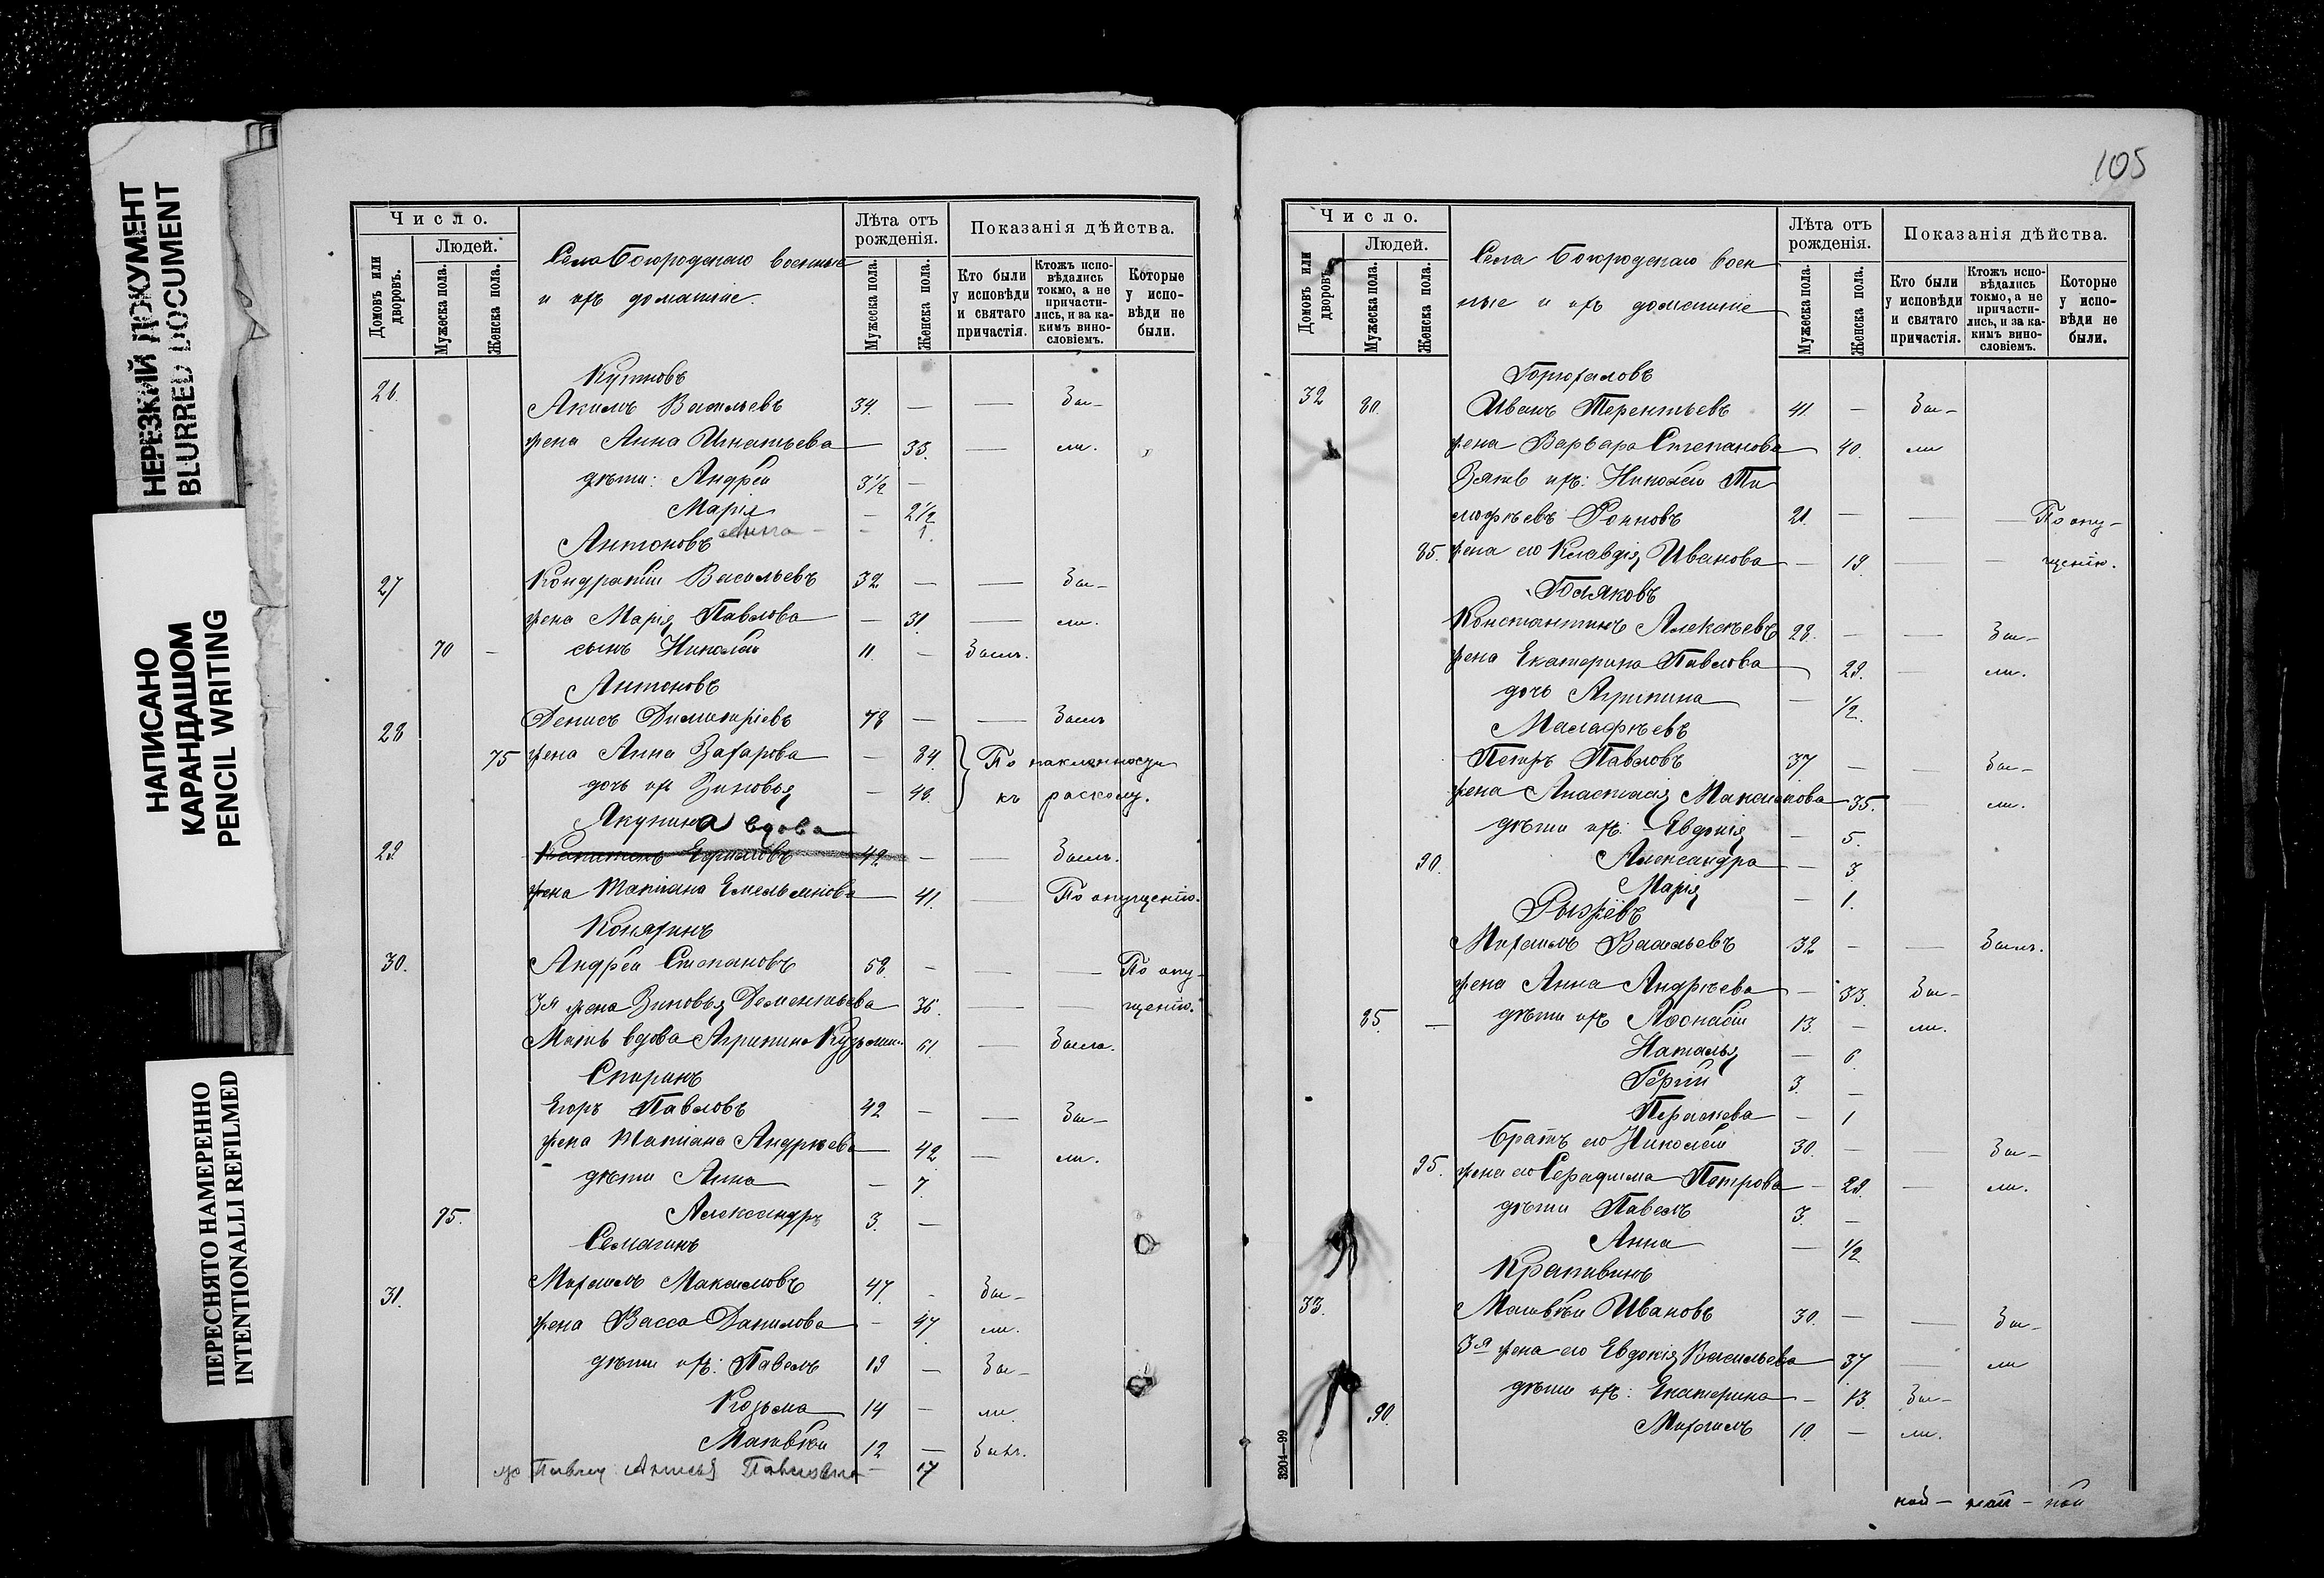 НЕРЕЗКИЙ ДОКУМЕНТ
BLURRED DOCUMENT
НАПИСАНО
КАРАНДАШОМ
PENCIL WRITING
ПЕРЕСНЯТО НАМЕРЕННО
INTENTIONALLI REFILMED
Число.
Людей.
Домовъ или дворовъ.
Мужеска пола.
Женска пола.
Села Богородскаго военные
и ихъ домашніе.
Лѣта отъ рожденія.
Мужеска пола.
Женска пола.
Показанія дѣйства.
Кто были у исповѣди и святаго причастія.
Ктожъ испо-вѣдались токмо, а не причасти-лись, и за ка-кимъ вино-словіемъ.
Которые у испо-вѣди не были.
26. Акимъ Васильевъ 34. — — Бы-
жена Анна Игнатьева — 33. — ли.
дѣти: Андрей 3½ —
Марія — 2½
Антоновъ
27 Кондратій Васильевъ 32 — — Бы-
жена Марія Павлова — 31. — ли.
70 — сынъ Николай 11. — Былъ.
Антоновъ
28 Денисъ Димитріевъ 78 — — Былъ
75 жена Анна Захарова — 84. По наклонности
дочь ихъ Зиновья — 48. къ расколу.
Якунина вдова
29 Ефимовъ 42 — — Былъ.
жена Татіана Емельянова 41. — По опущенію.
Конягинъ
30. Андрей Степановъ 58. — — — По опу-
3я жена Зиновья Дементьева 36. — — щенію.
Мать вдова Агрипина Кузьмин. 61. — Была.
Споринъ
Егоръ Павловъ 42 — — Бы-
жена Татіана Андреева 42 — ли.
дѣти Анна — 7.
75. Александръ 3. —
Семагинъ
31. Михаилъ Максимовъ 47. - Бы-
жена Васса Данилова — 47 ли.
дѣти ихъ: Павелъ 19 — Бы-
Козьма 14 — ли.
Матвѣй 12 — Былъ.
Павлу Анисья Павловна — 17
105
Число.
Людей.
Домовъ или дворовъ.
Мужеска пола.
Женска пола.
Села Богородскаго воен
ные и ихъ домашніе
Лѣта отъ рожденія.
Мужеска пола.
Женска пола.
Показанія дѣйства.
Кто были у исповѣди и святаго причастія.
Ктожъ испо-вѣдались токмо, а не причасти-лись, и за ка-кимъ вино-словіемъ.
Которые у испо-вѣди не были.
32 80. Иванъ Терентьевъ 41 — Бы-
жена Варвара Степанова 40. ли
Зять ихъ: Николай Ти
мофѣевъ 21. — — — По опу-
85. жена его Клавдія Иванова — 19. — — щенію.
Поляковъ
Константинъ Алексѣевъ 28. — — Бы-
жена Екатерина Павлова 29. — ли.
дочь Агрипина — ½.
Малафѣевъ
Петръ Павловъ 37 — — Бы-
жена Анастасія Максимова 35. ли.
дѣти ихъ: Евдокія — 5.
90. Александра — 3
Марія — 1.
Рыжёвъ
Михаилъ Васильевъ 32 — — Былъ.
жена Анна Андрѣева — 33. Бы-
85. — дѣти ихъ Аѳонасій 13. — ли.
Наталья — 6
3. —
Параскева — 1
братъ его Николай 30. — — Бы-
95. жена его Серафима Петрова — 29. — ли.
дѣти Павелъ 3. —
Анна — ½
Крапивинъ
33. Матвѣй Ивановъ 30. — — Бы-
3я жена его Евдокія Васильева 37 — ли
дѣти ихъ: Екатерина — 13. Бы-
90. Михаилъ 10. — ли.
3204—99